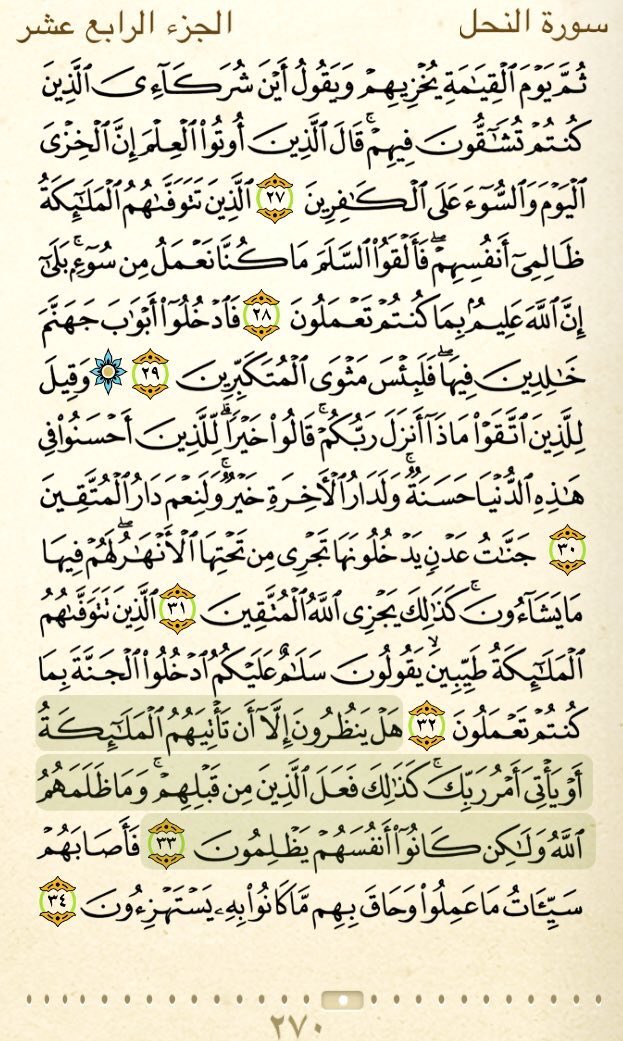 سورة النحل الجزء الرابع عشر
ثُمَّ يَوْمَ ٱلْقِيَٰمَةِ يُخْزِيهِمْ وَيَقُولُ أَيْنَ شُرَكَآءِىَ ٱلَّذِينَ
كُنتُمْ تُشَٰٓقُّونَ فِيهِمْ ۚ قَالَ ٱلَّذِينَ أُوتُوا۟ ٱلْعِلْمَ إِنَّ ٱلْخِزْىَ
ٱلْيَوْمَ وَٱلسُّوٓءَ عَلَى ٱلْكَٰفِرِينَ ٢٧ ٱلَّذِينَ تَتَوَفَّىٰهُمُ ٱلْمَلَٰٓئِكَةُ
ظَالِمِىٓ أَنفُسِهِمْ ۖ فَأَلْقَوُا۟ ٱلسَّلَمَ مَا كُنَّا نَعْمَلُ مِن سُوٓءٍۭ ۚ بَلَىٰٓ
إِنَّ ٱللَّهَ عَلِيمٌۢ بِمَا كُنتُمْ تَعْمَلُونَ ٢٨ فَٱدْخُلُوٓا۟ أَبْوَٰبَ جَهَنَّمَ
خَٰلِدِينَ فِيهَا ۖ فَلَبِئْسَ مَثْوَى ٱلْمُتَكَبِّرِينَ ٢٩ وَقِيلَ
لِلَّذِينَ ٱتَّقَوْا۟ مَاذَآ أَنزَلَ رَبُّكُمْ ۚ قَالُوا۟ خَيْرًا ۗ لِّلَّذِينَ أَحْسَنُوا۟ فِى
هَٰذِهِ ٱلدُّنْيَا حَسَنَةٌ ۚ وَلَدَارُ ٱلْءَاخِرَةِ خَيْرٌ ۚ وَلَنِعْمَ دَارُ ٱلْمُتَّقِينَ
٣٠ جَنَّٰتُ عَدْنٍ يَدْخُلُونَهَا تَجْرِى مِن تَحْتِهَا ٱلْأَنْهَٰرُ ۖ لَهُمْ فِيهَا
مَا يَشَآءُونَ ۚ كَذَٰلِكَ يَجْزِى ٱللَّهُ ٱلْمُتَّقِينَ ٣١ ٱلَّذِينَ تَتَوَفَّىٰهُمُ
ٱلْمَلَٰٓئِكَةُ طَيِّبِينَ ۙ يَقُولُونَ سَلَٰمٌ عَلَيْكُمُ ٱدْخُلُوا۟ ٱلْجَنَّةَ بِمَا
كُنتُمْ تَعْمَلُونَ ٣٢ هَلْ يَنظُرُونَ إِلَّآ أَن تَأْتِيَهُمُ ٱلْمَلَٰٓئِكَةُ
أَوْ يَأْتِىَ أَمْرُ رَبِّكَ ۚ كَذَٰلِكَ فَعَلَ ٱلَّذِينَ مِن قَبْلِهِمْ ۚ وَمَا ظَلَمَهُمُ
ٱللَّهُ وَلَٰكِن كَانُوٓا۟ أَنفُسَهُمْ يَظْلِمُونَ ٣٣ فَأَصَابَهُمْ
سَيِّـَٔاتُ مَا عَمِلُوا۟ وَحَاقَ بِهِم مَّا كَانُوا۟ بِهِۦ يَسْتَهْزِءُونَ ٣٤
٢٧٠